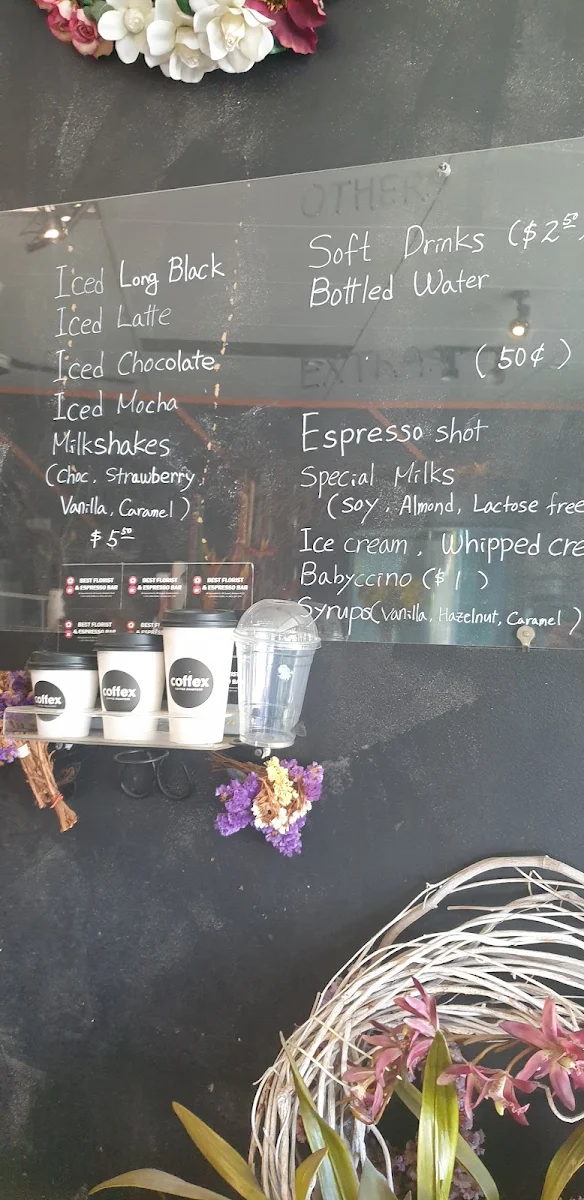 Iced Long Black
Iced Latte
Iced Chocolate
Iced Mocha
Milkshakes
(Choc, Strawberry,
Vanilla, Caramel)
$5 50
OTHER
Soft Drinks ($2 50
Bottled Water
EXTRA
(50¢)
Espresso shot
Special Milks
(Soy, Almond, Lactose free
Ice cream, Whipped cre
Babyccino ($1)
Syrups (Vanilla, Hazelnut, Caramel)
BEST FLORIST & ESPRESSO BAR
BEST FLORIST & ESPRESSO BAR
BEST FLORIST & ESPRESSO BAR
BEST FLORIST & ESPRESSO BAR
coffex
coffex
coffex